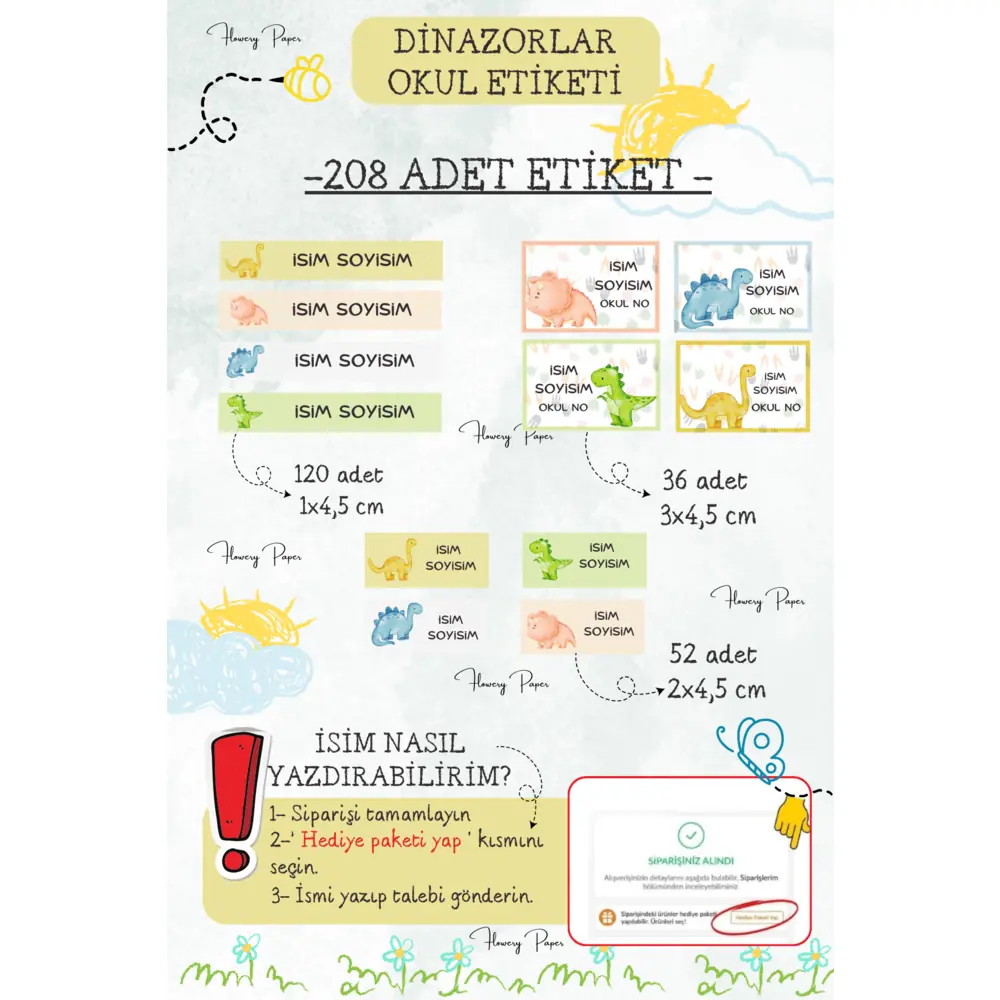 Flowery Paper
DİNAZORLAR
OKUL ETİKETİ
-208 ADET ETİKET -
İSİM SOYİSİM
İSİM SOYİSİM
İSİM SOYİSİM
İSİM SOYİSİM
İSİM
SOYİSİM
OKUL NO
İSİM
SOYİSİM
OKUL NO
İSİM
SOYİSİM
OKUL NO
İSİM
SOYİSİM
OKUL NO
Flowery Paper
120 adet
1x4,5 cm
36 adet
3x4,5 cm
Flowery Paper
İSİM
SOYİSİM
İSİM
SOYİSİM
İSİM
SOYİSİM
İSİM
SOYİSİM
Flowery Paper
52 adet
2x4,5 cm
Flowery Paper
İSİM NASIL
YAZDIRABİLİRİM?
1- Siparişi tamamlayın
2-' Hediye paketi yap ' kısmını
seçin.
3- İsmi yazıp talebi gönderin.
SİPARİŞİNİZ ALINDI
Alışverişinizin detaylarını aşağıda bulabilir, Siparişlerim
bölümünden inceleyebilirsiniz
Siparişindeki ürünler hediye paketi
yapılabilir. Ürünleri seç!
Hediye Paketi Yap
Flowery Paper